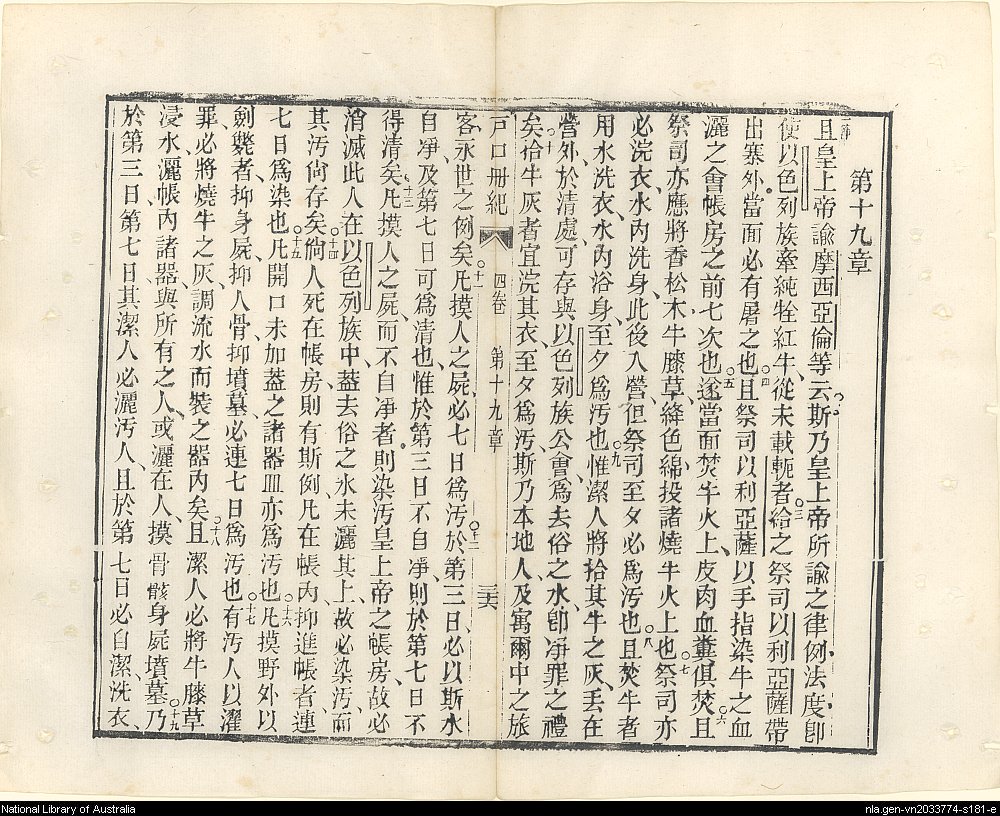 第十九章
一節 且皇上帝諭摩西亞倫等云斯乃皇上帝所諭之律例法度卽
使以色列族牽純牲紅牛從未載軛者給之祭司以利亞薩帶
出寨外當面必有屠之也且祭司以利亞薩以手指染牛之血
灑之會帳房之前七次也遂當面焚牛火上皮肉血糞俱焚且
祭司亦應將香松木牛膝草絳色綿投諸燒牛火上也祭司亦
必浣衣水內洗身此後入營但祭司至夕必爲污也且焚牛者
用水洗衣水內浴身至夕爲污也惟潔人將拾其牛之灰丟在
營外於清處可存與以色列族公會爲去俗之水卽凈罪之禮
矣拾牛灰者宜浣其衣至夕爲污斯乃本地人及寓爾中之旅
戸口册紀 四卷 第十九章 三六
客永世之例矣凡摸人之屍必七日爲污於第三日必以斯水
自凈及第七日可爲清也惟於第三日不自凈則於第七日不
得清矣凡摸人之屍而不自凈者則染污皇上帝之帳房故必
消滅此人在以色列族中蓋去俗之水未灑其上故必染污而
其污尙存矣倘人死在帳房則有斯例凡在帳內抑進帳者連
七日爲染也凡開口未加蓋之諸器皿亦爲污也凡摸野外以
劍斃者抑身屍抑人骨抑墳墓必連七日爲污也有污人以濯
罪必將燒牛之灰調流水而裝之器內矣且潔人必將牛膝草
浸水灑帳內諸器與所有之人或灑在人摸骨骸身屍墳墓乃
於第三日第七日其潔人必灑污人且於第七日必自潔洗衣
National Library of Australia
nla.gen-vn2033774-s181-e